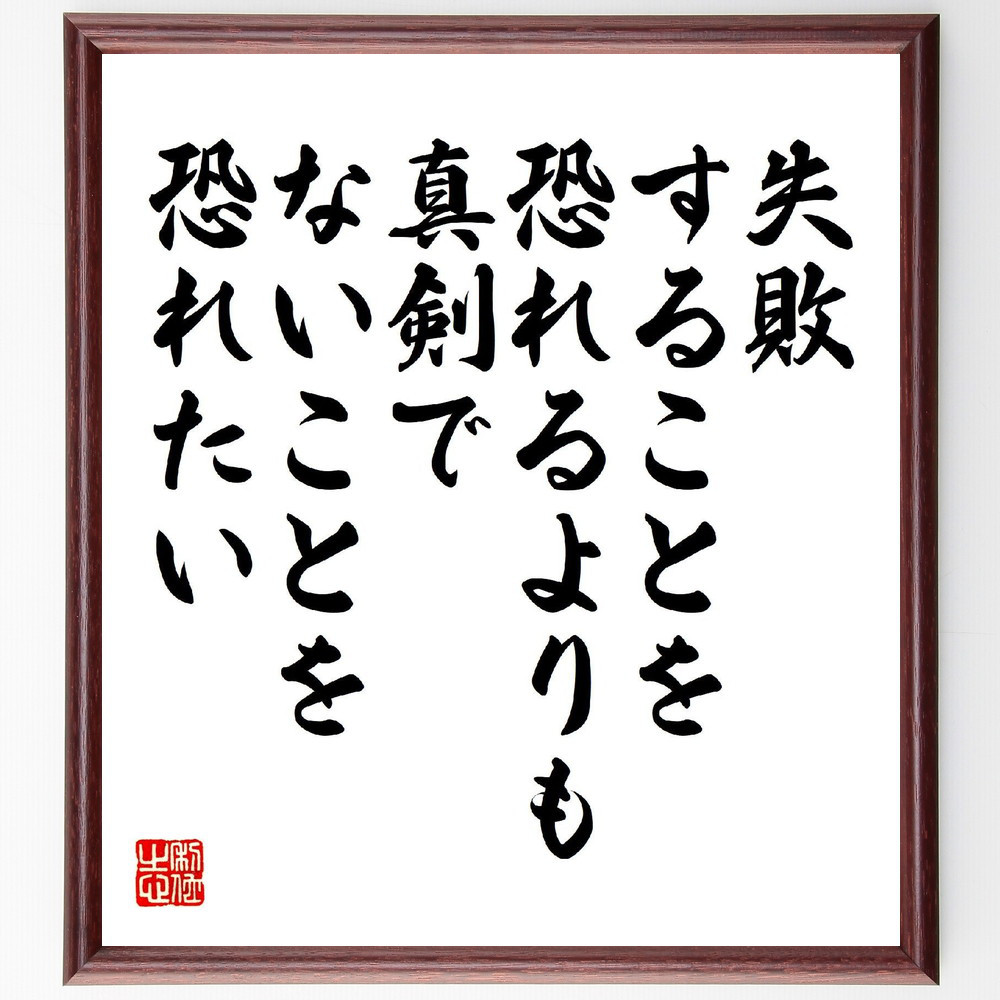 失敗
することを
恐れるよりも
真剣で
ないことを
恐れたい